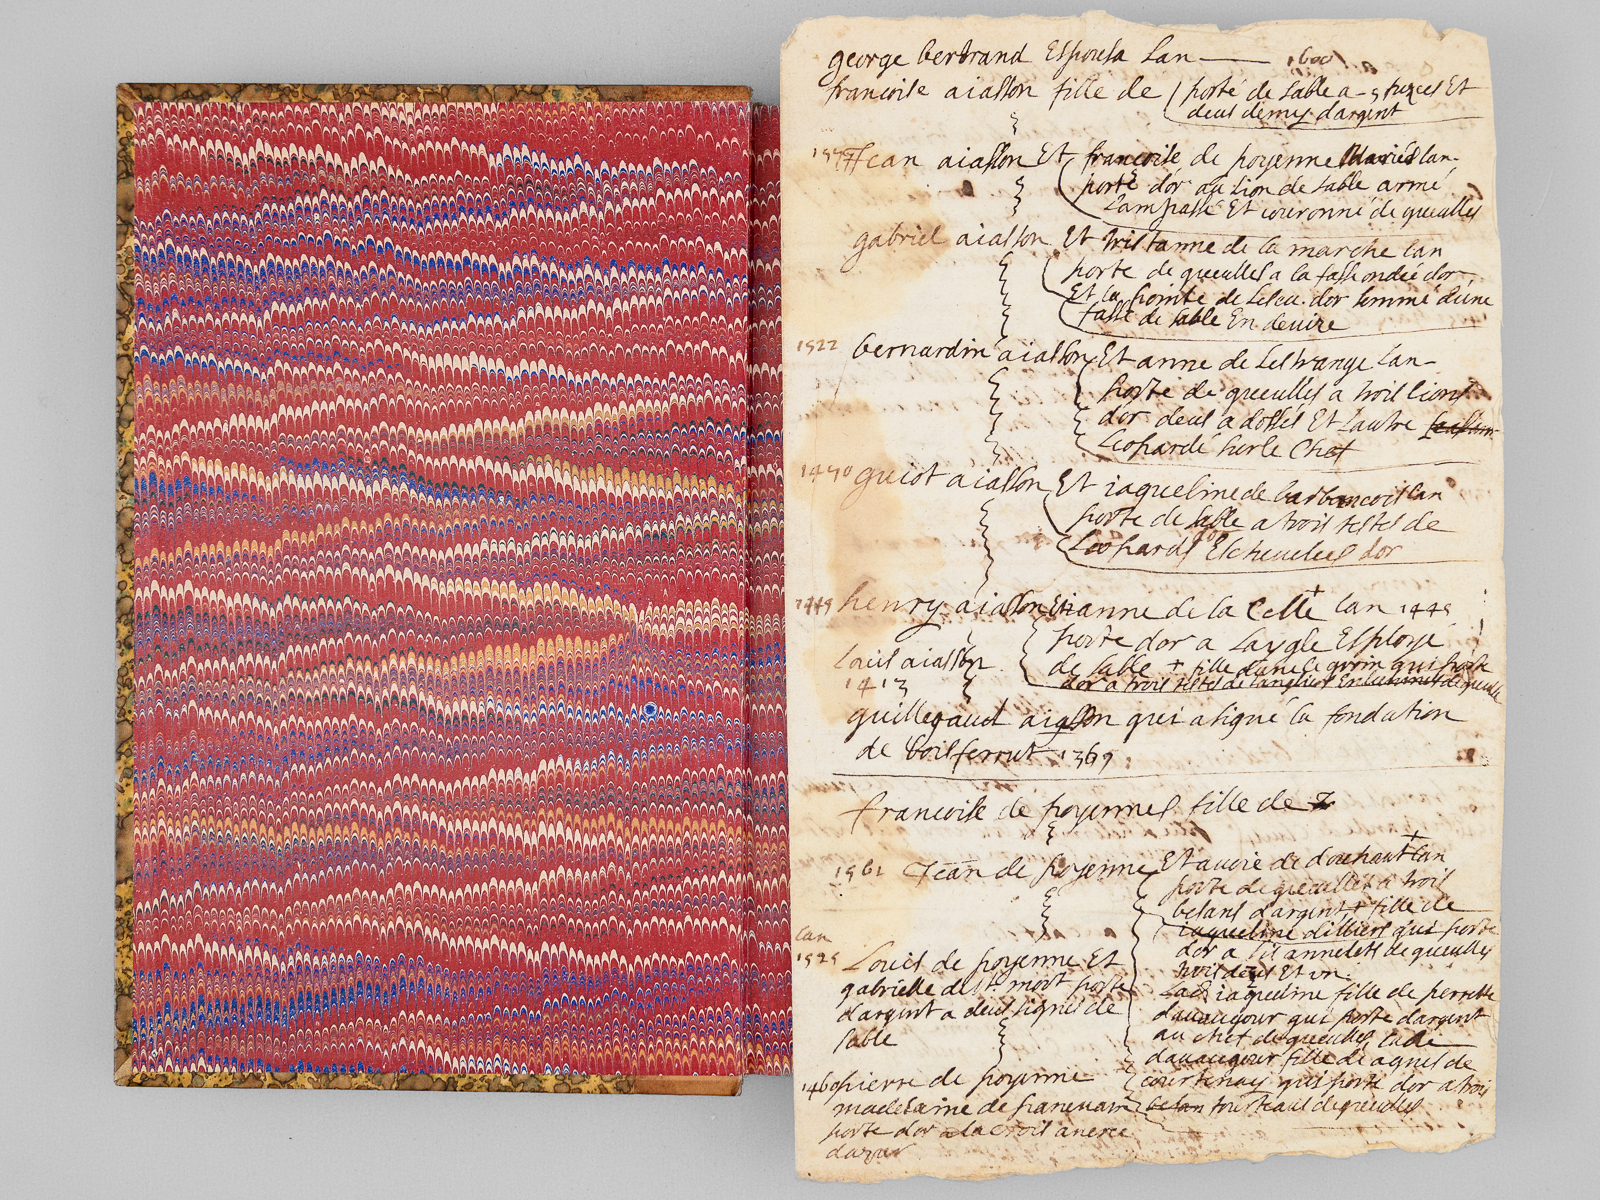 george bertrand Espousa Lan — 1600
francoise aiasson fille de porte de sable a 3 fuzees Et
deus demis dargent
Jean aiasson Et francoise de poyenne Mariés lan
porte dor au Lion de sable armé
Lampassé Et couronné de gueulles
gabriel aiasson Et tristanne de la marche lan
porte de gueulles a la dor
Et la pointe de Lescu dor semmé dune
fasse de sable En devire
1522 bernardin aiasson Et anne de Lestrange Lan
porte de gueulles a trois lions
dor deus adossés Et Lautre
Leopardé sur le Chef
1490 guiot aiasson Et iaqueline de barbancois lan
porte de sable a trois testes de
Leopards Eschevelees dor
1449 henry aiasson Et ianne de la Celle + lan 1449
porte dor a Laygle Esploye
de sable + fille dune le groin qui porte
Louis aiasson
dor a trois testes de sanglier de gueulle
1413
guillegaud aiasson qui a signé la fondation
de boisferrut 1369
francoise de poyennes fille de
1561 Jean de poyenne Et de douhaut + lan
porte de gueulles a trois
besans dargent + fille de
iaqueline dilliers qui porte
lan
1525 Louis de poyenne Et
dor a sis annelets de gueulles
trois deus Et un
gabrielle de St mort porte
Lad iaqueline fille de perrette
dargent a deus signes de
davaugour qui porte dargent
sable
au chef de gueulles lade
davaugour fille de agnes de
1460 pierre de poyenne
courtenay qui porte dor a trois
madelaine de
besan tourteaus de gueulles
porte dor a la crois ancree
dazur